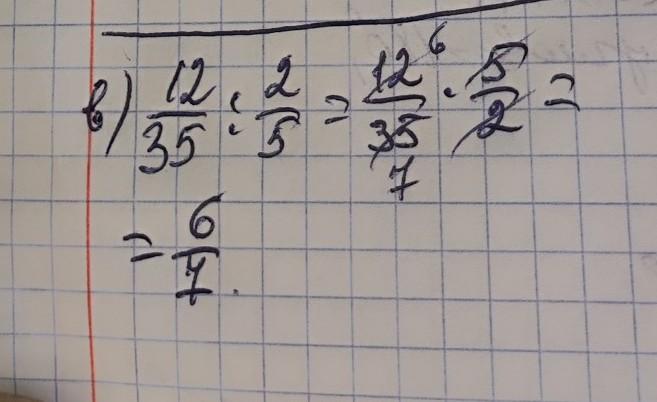 в) 12/35 : 2/5 = 12⁶/35₇ · 5/2 =
= 6/7.